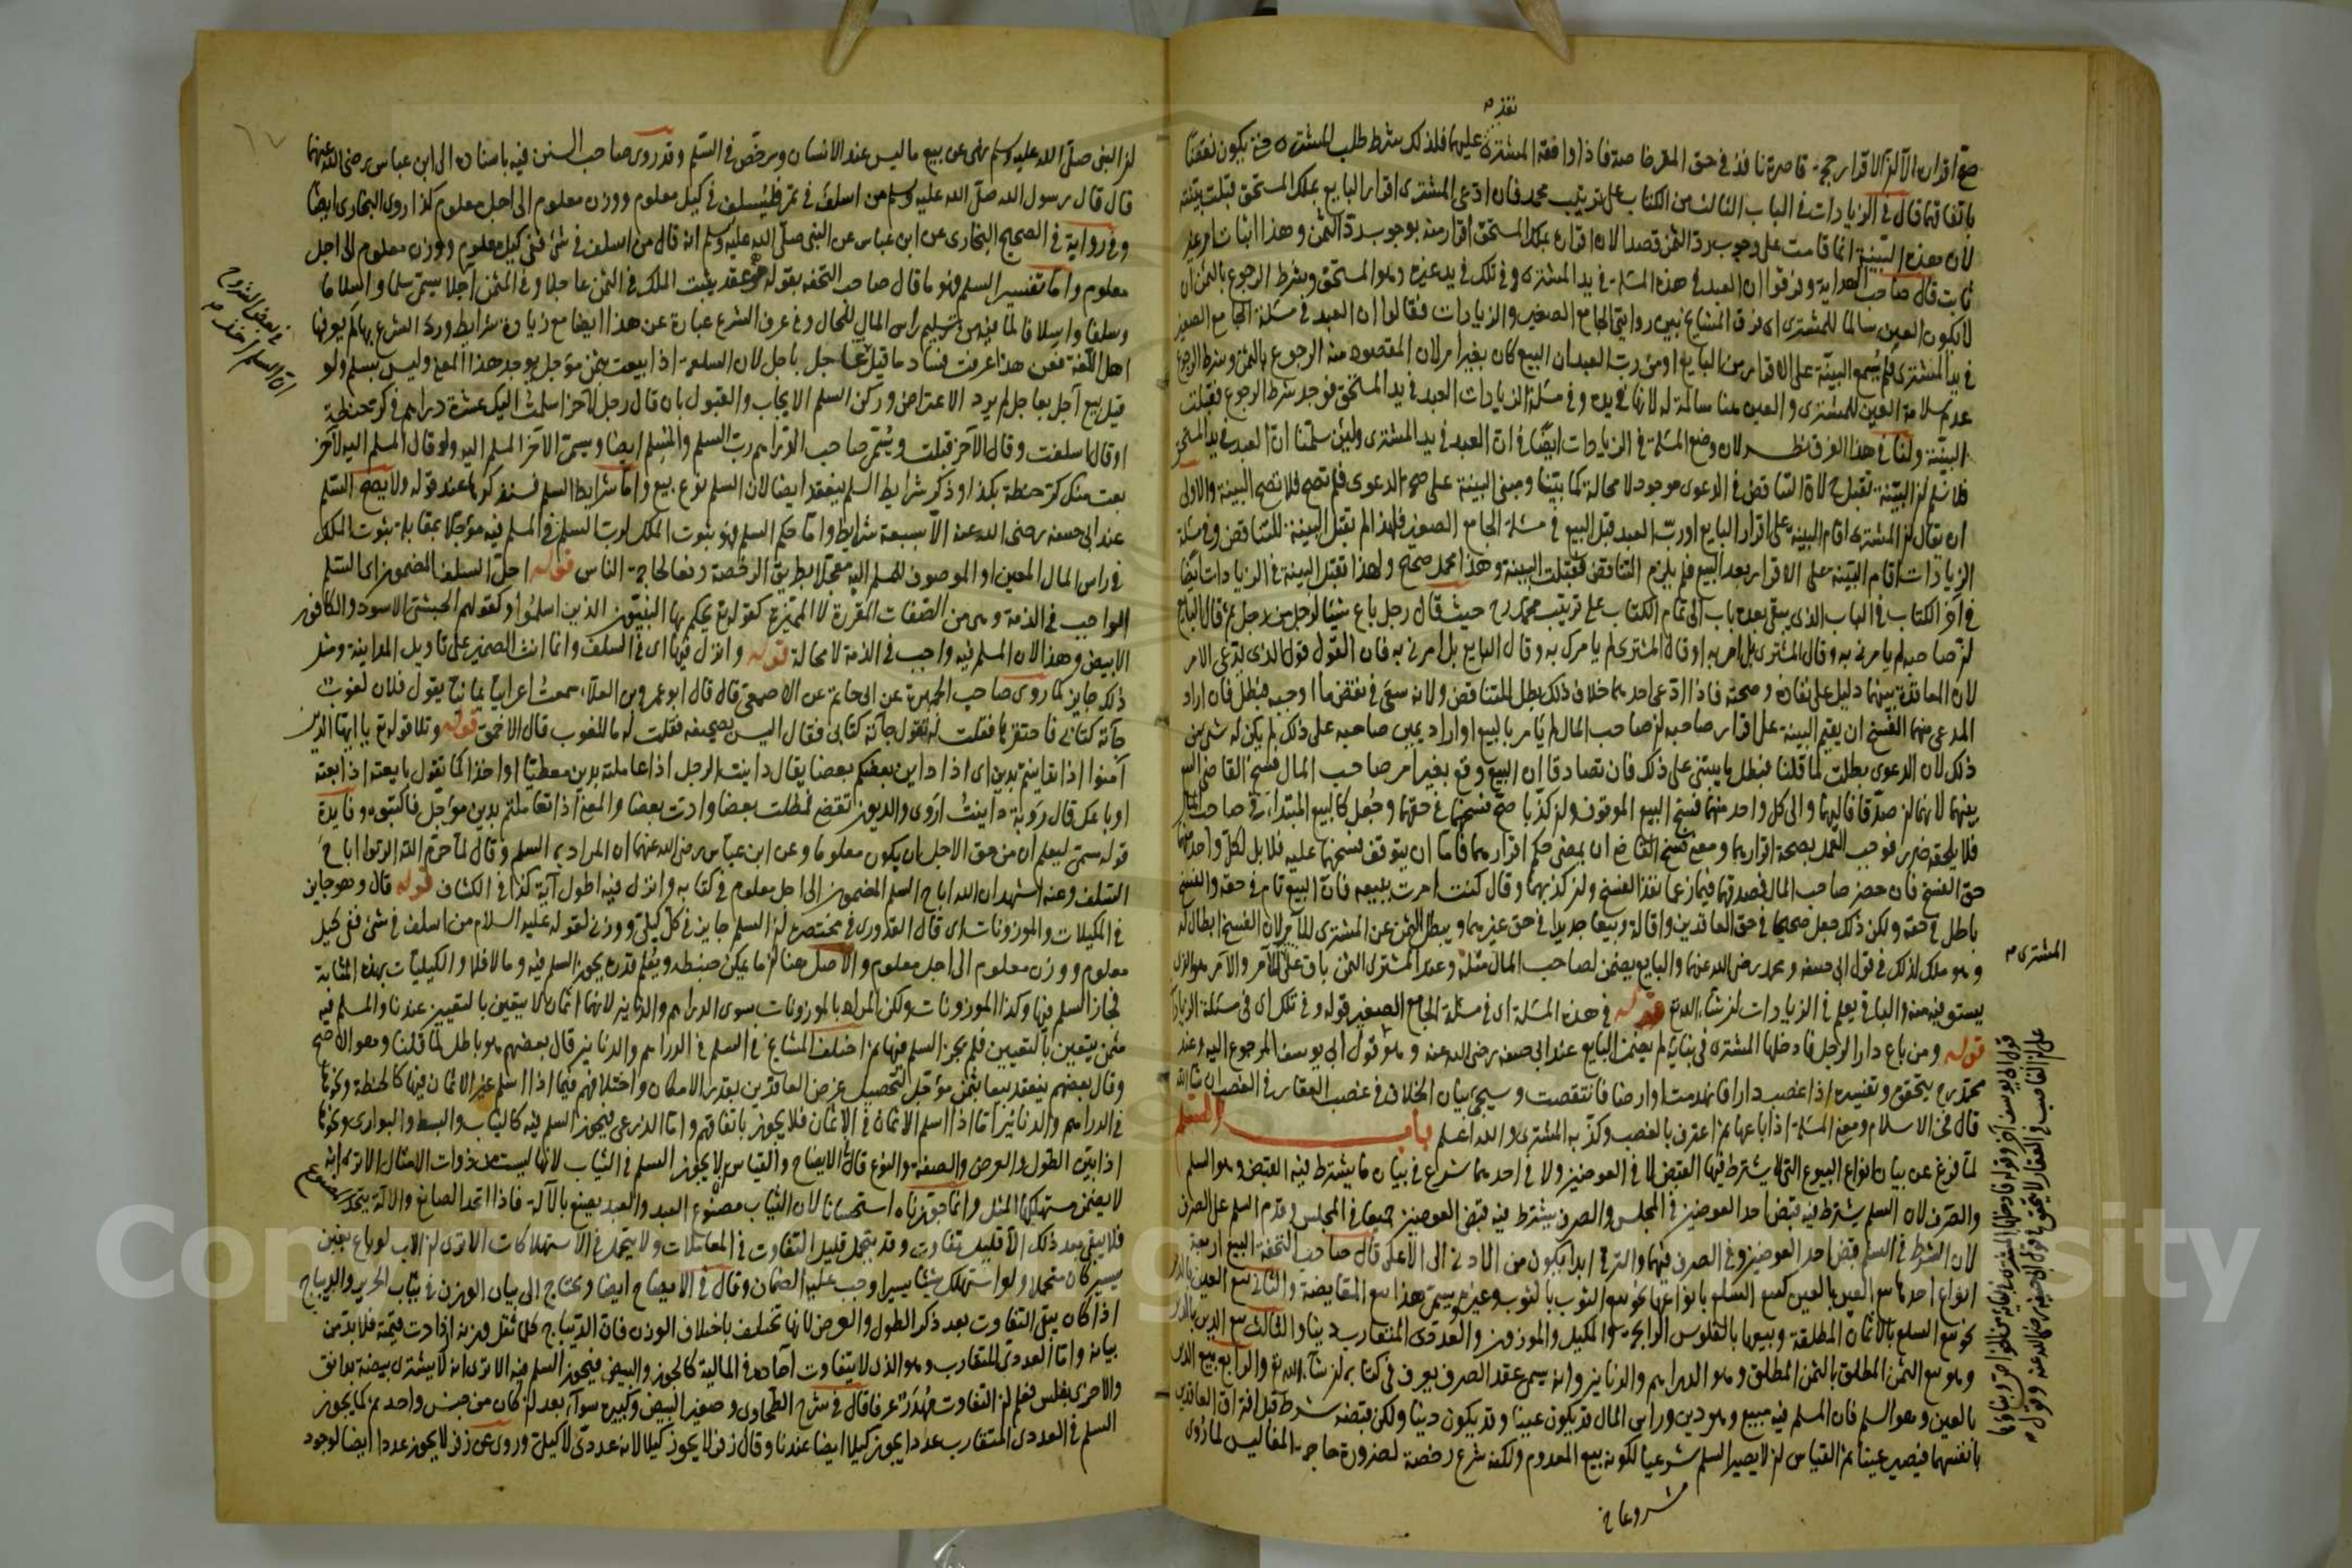 نفذ م
صح اقراره الا ان الاقرار حجة قاصرة نافذ في حق المقر خاصة فاذا وافقه المشتري عليها فلذلك شرط طلب المشتري حتى يكون نقضا
باتفاقهما قال في الزيادات في الباب الثالث من الكتاب على ترتيب محمد فان ادعى المشتري اقرار البايع بملك المستحق قبلت بينته
لان هذه البينة انما قامت على وجوب رد الثمن قصدا لان اقراره بملك المستحق اقرار منه بوجوب رد الثمن وهذا اثبات امر غير
ثابت قال صاحب الهداية وفرقوا ان العبد في هذه المسئلة في يد المشتري وفي تلك في يد غيره وهو المستحق وشرط الرجوع بالثمن ان
لا يكون العين سالما للمشتري اى فرق المشايخ بين روايتي الجامع الصغير والزيادات فقالوا ان العبد في مسئلة الجامع الصغير
في يد المشتري فلم يسمع البينة على الاقرار من البايع او من رب العبد ان البيع كان بغير امر لان المقصود منه الرجوع بالثمن وشرط الرجوع
عدم سلامة العين للمشتري والعين هنا سالمة له لانها في يده وفي مسئلة الزيادات العبد في يد المستحق فوجد شرط الرجوع فقبلت
البينة ولنا في هذا الفرق نظر لان وضع المسئلة في الزيادات ايضا في ان العبد في يد المشتري ولئن سلمنا ان العبد في يد المستحق
فلا نسلم ان البينة تقبل ح لان التناقض في الدعوى موجود لا محالة كما بينا ومبنى البينة على صحة الدعوى فلم تصح فلا تصح البينة والاولى
ان يقال ان المشتري اقام البينة على اقرار البايع او رب العبد قبل البيع في مسئلة الجامع الصغير فلهذا لم تقبل البينة للتناقض وفي مسئلة
الزيادات اقام البينة على الاقرار بعد البيع فلم يلزم التناقض فقبلت البينة وهذا محمل صحيح ولهذا تقبل البينة في الزيادات ايضا
في آخر الكتاب في الباب الذي يبقى بعده باب الى تمام الكتاب على ترتيب محمد رح حيث قال رجل باع شيئا لرجل من رجل ثم قال البايع
ان صاحبه لم يامرني به وقال المشتري بل امر به او قال المشتري لم يامرك به وقال البايع بل امرني به فان القول قول الذي يدعي الامر
لان المعاقدة بينهما دليل على نفاذه وصحته فاذا ادعى احدهما خلاف ذلك بطل للتناقض ولانه سعى في نقض ما اوجبه فبطل فان اراد
المدعي منهما الفسخ ان يقيم البينة على اقرار صاحبه ان صاحب المال لم يامر بالبيع او اراد يمين صاحبه على ذلك لم يكن له شئ من
ذلك لان الدعوى بطلت لما قلنا فبطل ما يبتنى على ذلك فان تصادقا ان البيع وقع بغير امر صاحب المال فسخ القاضي البيع
بينهما لانهما ان صدقا فاليهما والى كل واحد منهما فسخ البيع الموقوف وان كذبا صح فسخهما في حقهما وجعل كالبيع المبتداء في صاحب المال
فلا يلحقه ضرر فوجب العمل بصحة اقرارهما ومعنى فسخ القاضي ان يمضي حكم اقرارهما فاما ان يتوقف فسخهما عليه فلا بل لكل واحد منهما
حق الفسخ فان حضر صاحب المال فصدقهما فيما زعما نفذ الفسخ وان كذبهما وقال كنت امرت ببيعه فان البيع تام في حقه والفسخ
باطل في حقه ولكن ذلك جعل صحيحا في حق العاقدين واقالة وبيعا جديدا في حق غيرهما ويبطل الثمن عن المشتري للآمر لان الفسخ ابطال له
وهو ملك لذلك في قول ابي حنيفة ومحمد رضي الله عنهما والبايع يضمن لصاحب المال مثله وعند المشتري الثمن باق على للآمر والآمر هو الذي
يستوفيه منه والباقي يعلم في الزيادات ان شاء الله تع قوله في هذه المسئلة اى في مسئلة الجامع الصغير قوله وفي تلك اى في مسئلة الزيادات
قوله ومن باع دارا لرجل فادخلها المشتري في بنائه لم يضمن البايع عند ابي حنيفة رضي الله عنه وهو قول ابي يوسف المرجوع اليه وعند
محمد رح يتحقق وتفسيره اذا غصب دارا فانهدمت او ارضا فانتقصت وسيجئ بيان الخلاف في غصب العقار في الغصب ان شاء الله
قال فخر الاسلام ومعنى المسئلة اذا باعها ثم اعترف بالغصب وكذبه المشتري والله اعلم باب السلم
لما فرغ عن بيان انواع البيوع التي لا يشترط فيها القبض لا في العوضين ولا في احدهما شرع في بيان ما يشترط فيه القبض وهو السلم
والصرف لان السلم يشترط فيه قبض احد العوضين في المجلس والصرف يشترط فيه قبض العوضين جميعا في المجلس وقدم السلم على الصرف
لان الشرط في السلم قبض احد العوضين وفي الصرف فيهما والترقي ابدا يكون من الادنى الى الاعلى قال صاحب التحفة البيع اربعة
انواع احدها بيع العين بالعين كبيع السلع بانواعها نحو بيع الثوب بالثوب وغيره ويسمى هذا بيع المقايضة والثاني بيع العين بالدين
نحو بيع السلع بالاثمان المطلقة وبيعها بالفلوس الرايجة والمكيل والموزون والعددي المتقارب دينا والثالث بيع الدين بالدين
وهو بيع الثمن المطلق بالثمن المطلق وهو الدراهم والدنانير وانه يسمى عقد الصرف يعرف في كتابه ان شاء الله تع والرابع بيع الدين
بالعين وهو السلم فان المسلم فيه مبيع وهو دين وراس المال قد يكون عينا وقد يكون دينا ولكن قبضه شرط قبل افتراق العاقدين
بانفسهما فيصير عينا ثم القياس ان لا يصير السلم شرعيا لكونه بيع المعدوم ولكنه شرع رخصة لضرورة حاجة المفاليس لما روي
المشتري م
قول ابي يوسف آخر وقوله فادخلها المشتري في بنائه
على ان الغاصب في العقار لا يتحقق في قول ابي حنيفة رضي الله عنه وقول
مشروعا خ
ان النبي صلى الله عليه وسلم نهى عن بيع ما ليس عند الانسان ورخص في السلم وقد روى صاحب السنن فيه باسناده الى ابن عباس رضي الله عنهما
قال قال رسول الله صلى الله عليه وسلم من اسلف في تمر فليسلف في كيل معلوم ووزن معلوم الى اجل معلوم كذا روى البخاري ايضا
وفي رواية في الصحيح البخاري عن ابن عباس عن النبي صلى الله عليه وسلم انه قال من اسلف في شئ ففي كيل معلوم ووزن معلوم الى اجل
معلوم واما تفسير السلم فهو ما قال صاحب التحفة بقوله هو عقد يثبت الملك في الثمن عاجلا وفي المثمن آجلا يسمى سلما واسلاما
وسلفا واسلافا لما فيه من تسليم راس المال للحال وفي عرف الشرع عبارة عن هذا ايضا مع زيادة شرايط ورد الشرع بها لم يعرفها
اهل اللغة فعن هذا عرفت فساد ما قيل اخذ عاجل باجل لان السلعة اذا بيعت بثمن مؤجل يوجد هذا المعنى وليس بسلم ولو
قيل بيع آجل بعاجل لم يرد الاعتراض وركن السلم الايجاب والقبول بان قال رجل لآخر اسلمت اليك عشرة دراهم في كر حنطة
او قال اسلفت وقال الآخر قبلت ويسمى صاحب الدراهم رب السلم والمسلم ايضا ويسمى الآخر المسلم اليه ولو قال المسلم اليه لآخر
بعت منك كر حنطة بكذا وذكر شرايط السلم ينعقد ايضا لان السلم نوع بيع واما شرايط السلم فسنذكرها عند قوله ولا يصح السلم
عند ابي حنيفة رضي الله عنه الا بسبعة شرايط واما حكم السلم فهو ثبوت الملك لرب السلم في المسلم فيه مؤجلا بمقابلة ثبوت الملك
في راس المال المعين او الموصوف للمسلم اليه معجلا بطريق الرخصة دفعا لحاجة الناس قوله احل السلف المضمون اى السلم
الواجب في الذمة وهي من الصفات المقررة لا المميزة كقوله تع يحكم بها النبيون الذين اسلموا وكقولهم الحبشي الاسود والكافور
الابيض وهذا لان المسلم فيه واجب في الذمة لا محالة قوله وانزل فيها اى في السلف وانما انث الضمير على تاويل المداينة ومثل
ذلك جايز لما روى صاحب الجمهرة عن ابي حاتم عن الاصمعي قال قال ابو عمرو بن العلاء سمعت اعرابيا يمانيا يقول فلان لغوب
جاءته كتابي فاحتقرها فقلت له تقول جاءته كتابي فقال اليس بصحيفة فقلت له ما اللغوب قال الاحمق قوله وتلا قوله تع يا ايها الذين
آمنوا اذا تداينتم بدين اى اذا داين بعضكم بعضا يقال داينت الرجل اذا عاملته بدين معطيا او اخذا كما تقول بايعته اذا بعته
او باعك قال رؤبة داينت اروى والديون تقضى فمطلت بعضا وادت بعضا والمعنى اذا تعاملتم بدين مؤجل فاكتبوه وفايدة
قوله مسمى ليعلم ان من حق الاجل ان يكون معلوما وعن ابن عباس رضي الله عنهما ان المراد به السلم وقال لما حرم الله الربوا اباح
السلف وعنه اشهد ان الله اباح السلم المضمون الى اجل معلوم في كتابه وانزل فيه اطول آية كذا في الكشاف قوله قال وهو جايز
في المكيلات والموزونات اى قال القدوري في مختصره ان السلم جايز في كل كيلي ووزني لقوله عليه السلام من اسلف في شئ ففي كيل
معلوم ووزن معلوم الى اجل معلوم والاصل هنا ان ما يمكن ضبطه ويعلم قدره يجوز السلم فيه وما لا فلا والكيليات بهذه المثابة
فجاز السلم فيها وكذا الموزونات ولكن المراد بالموزونات سوى الدراهم والدنانير لانها اثمان لا يتعين بالتعيين عندنا والمسلم فيه
مثمن يتعين بالتعيين فلم يجز السلم فيها ثم اختلف المشايخ في السلم في الدراهم والدنانير قال بعضهم هو باطل لما قلنا وهو الاصح
وقال بعضهم ينعقد بيعا بثمن مؤجل لتحصيل غرض العاقدين بقدر الامكان واختلافهم فيما اذا اسلم غير الاثمان فيها كالحنطة ونحوها
في الدراهم والدنانير اما اذا اسلم الاثمان في الاثمان فلا يجوز باتفاقهم واما الذرعي فيجوز السلم فيه كالثياب والبسط والبواري ونحوها
اذا بين الطول والعرض والصفة والنوع قال في الايضاح والقياس لا يجوز السلم في الثياب لانها ليست من ذوات الامثال الا ترى انه
لا يضمن مستهلكها المثل وانما جوزناه استحسانا لان الثياب مصنوع العبد والعبد يصنع بالآلة فاذا اتحد الصانع والآلة يتحد المصنوع
فلا يبقى بعد ذلك الا قليل تفاوت وقد يتحمل قليل التفاوت في المعاملات ولا يتحمل في الاستهلاكات الا ترى ان الاب لو باع بغبن
يسير كان متحملا ولو استهلك شيئا يسيرا وجب عليه الضمان وقال في الايضاح ايضا ويحتاج الى بيان الوزن في ثياب الحرير والديباج
اذا كان يبقى التفاوت بعد ذكر الطول والعرض لانها تختلف باختلاف الوزن فان الديباج كلما ثقل وزنه ازدادت قيمته فلا بد من
بيانه واما العددي المتقارب وهو الذي لا يتفاوت آحاده في المالية كالجوز والبيض فيجوز السلم فيه الا ترى انه لا يشتري بيضة بدانق
والاخرى بفلس فعلم ان التفاوت مهدر عرفا قال في شرح الطحاوي وصغير البيض وكبيره سواء بعد ان كان من جنس واحد ثم كما يجوز
السلم في العددي المتقارب عددا يجوز كيلا ايضا عندنا وقال زفر لا يجوز كيلا لانه عددي لا كيلي وروى عن زفر لا يجوز عددا ايضا لوجود
في بعض الشروح
ان السلم اخذ م